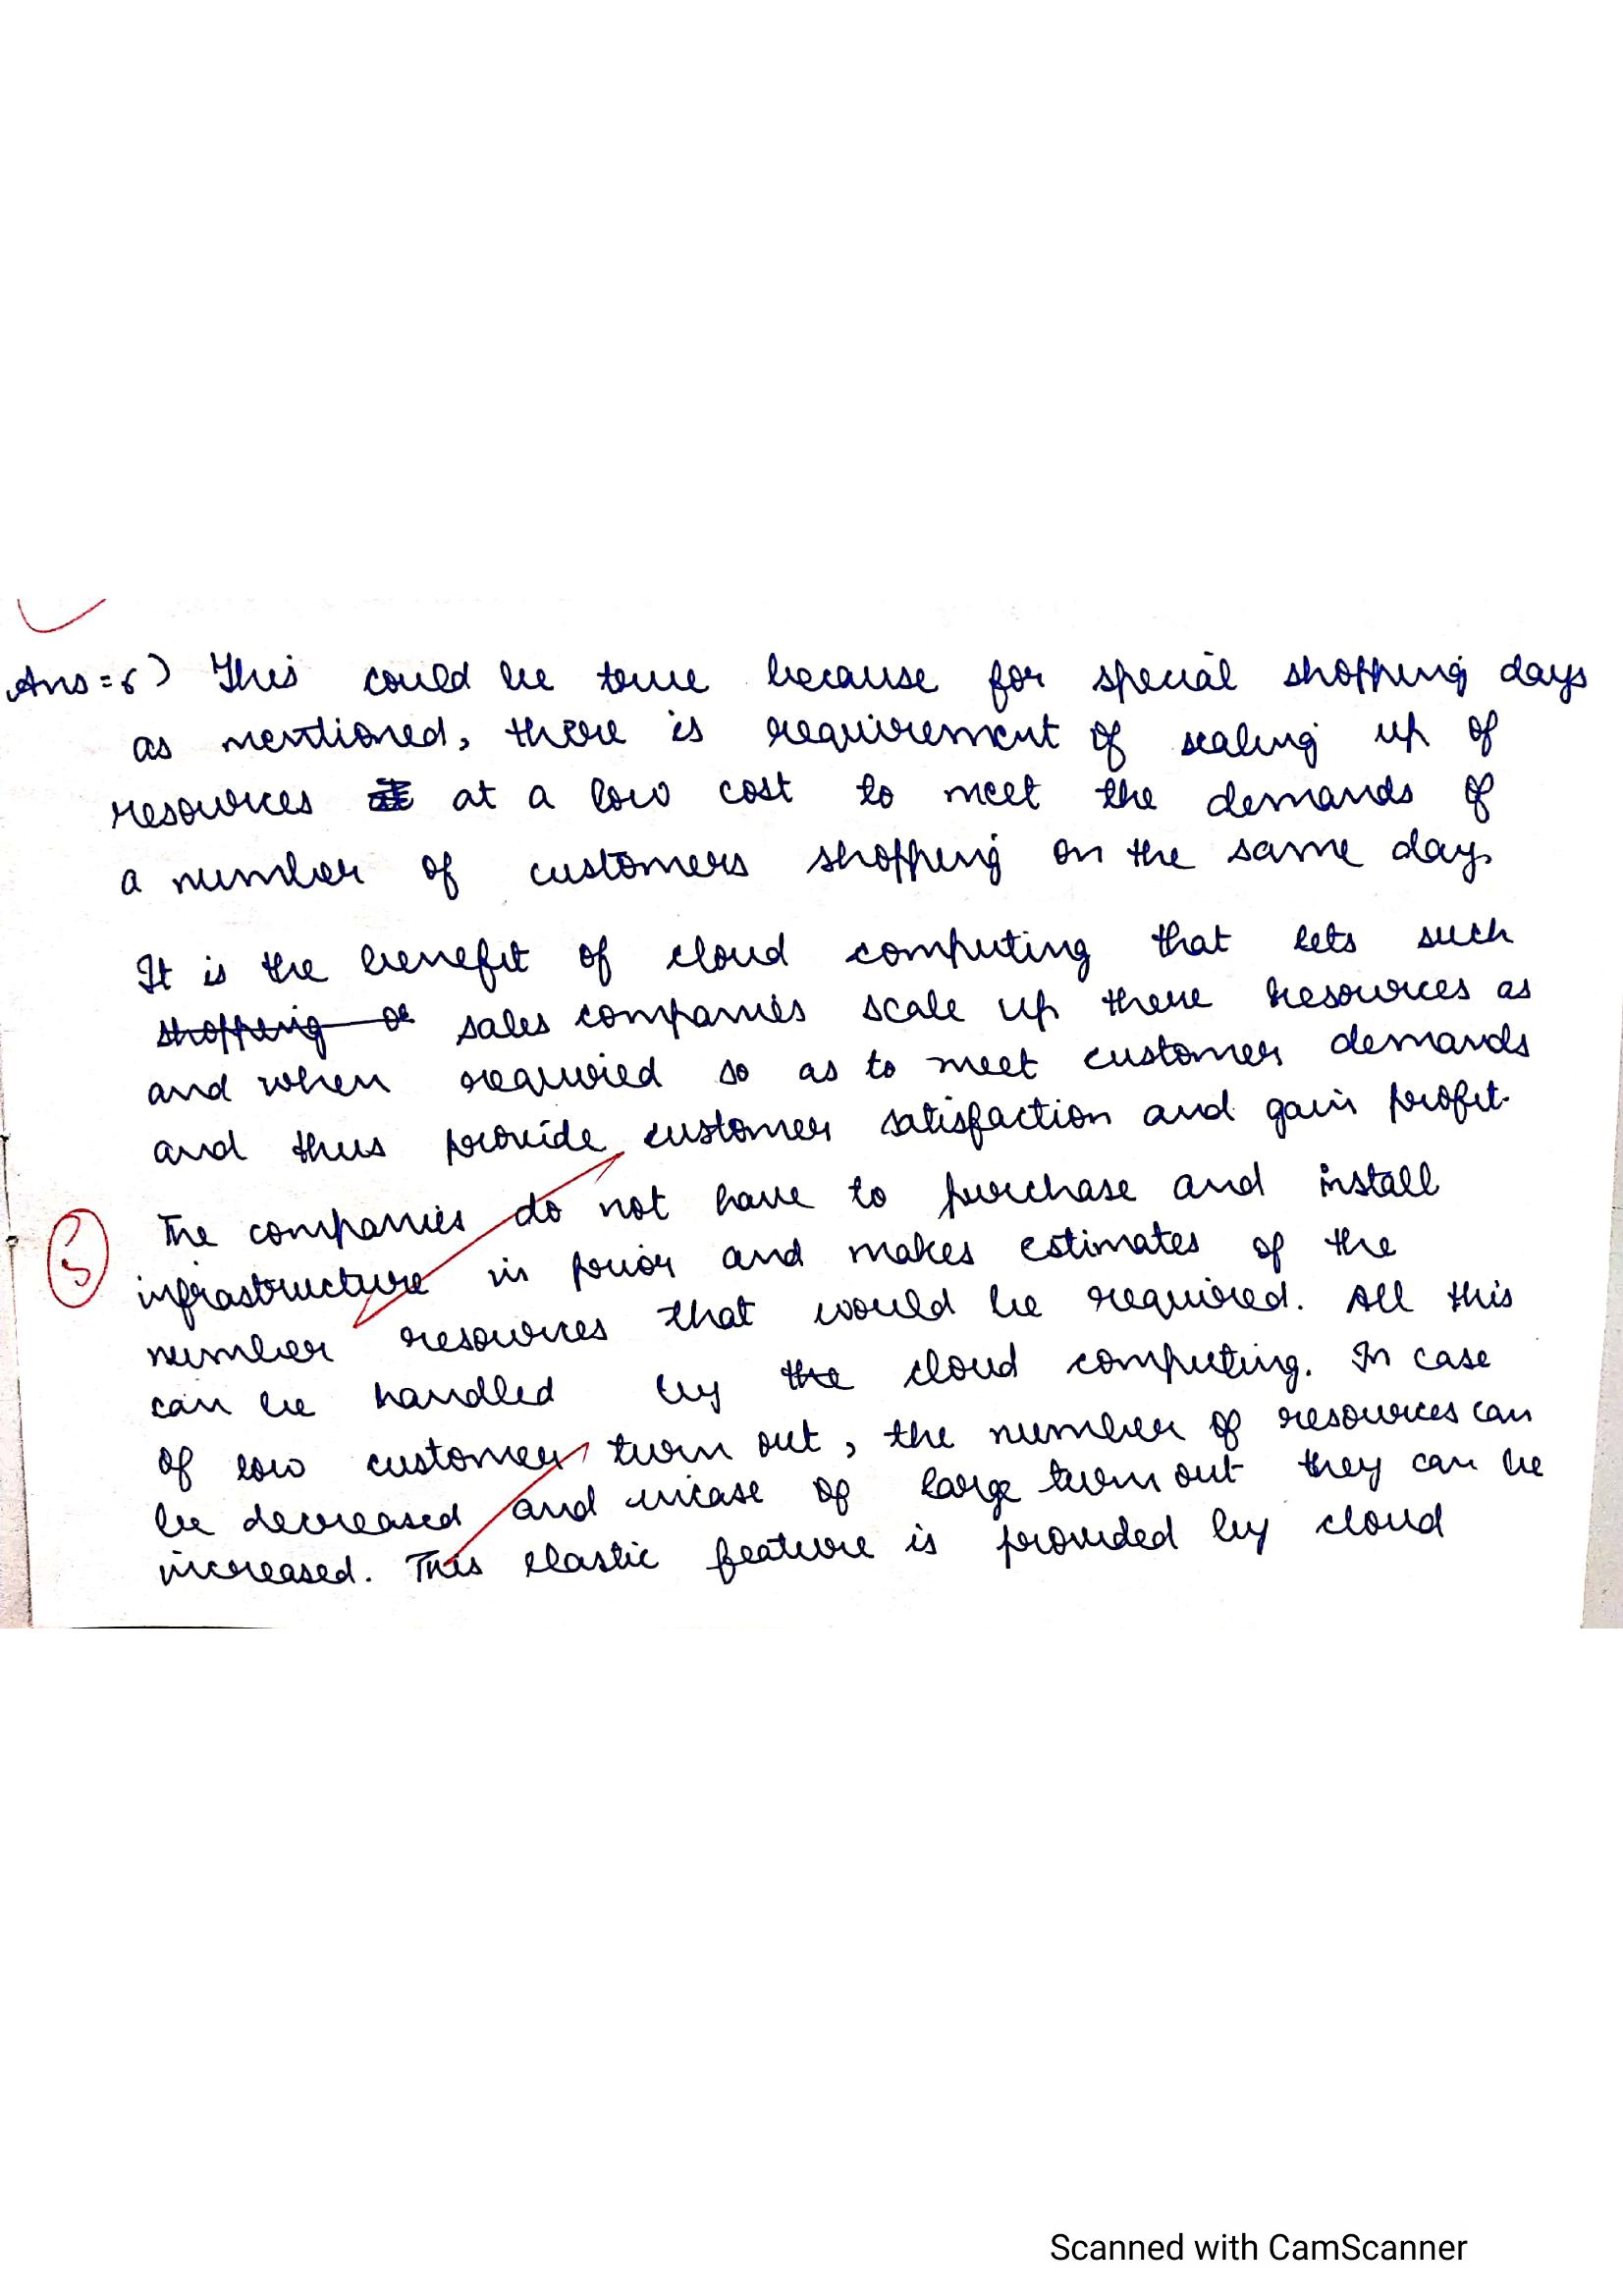 Ans = 6) This could be true because for special shopping days
as mentioned, there is requirement of scaling up of
resources at a low cost to meet the demands of
a number of customers shopping on the same day.
It is the benefit of cloud computing that lets such
shopping or sales companies scale up there resources as
and when required so as to meet customer demands
and thus provide customer satisfaction and gain profit.
The companies do not have to purchase and install
infrastructure in prior and makes estimates of the
number resources that would be required. All this
can be handled by the cloud computing. In case
of low customer turn out, the number of resources can
be decreased and incase of large turn out they can be
increased. This elastic feature is provided by cloud
Scanned with CamScanner